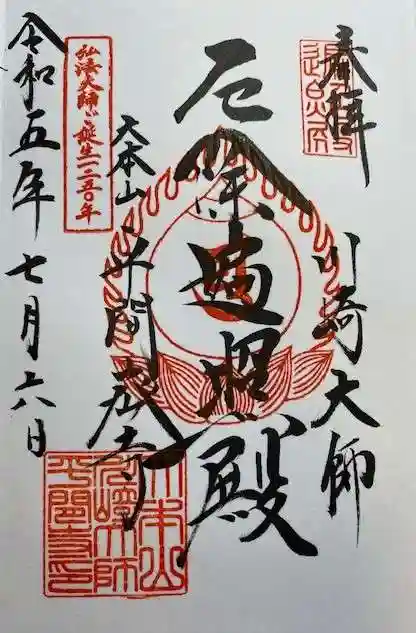 奉拝
川崎大師
厄除遍照殿
大本山
平間寺
弘法大師ご誕生一二五〇年
令和五年七月六日
大本山
川崎大師
平間寺印